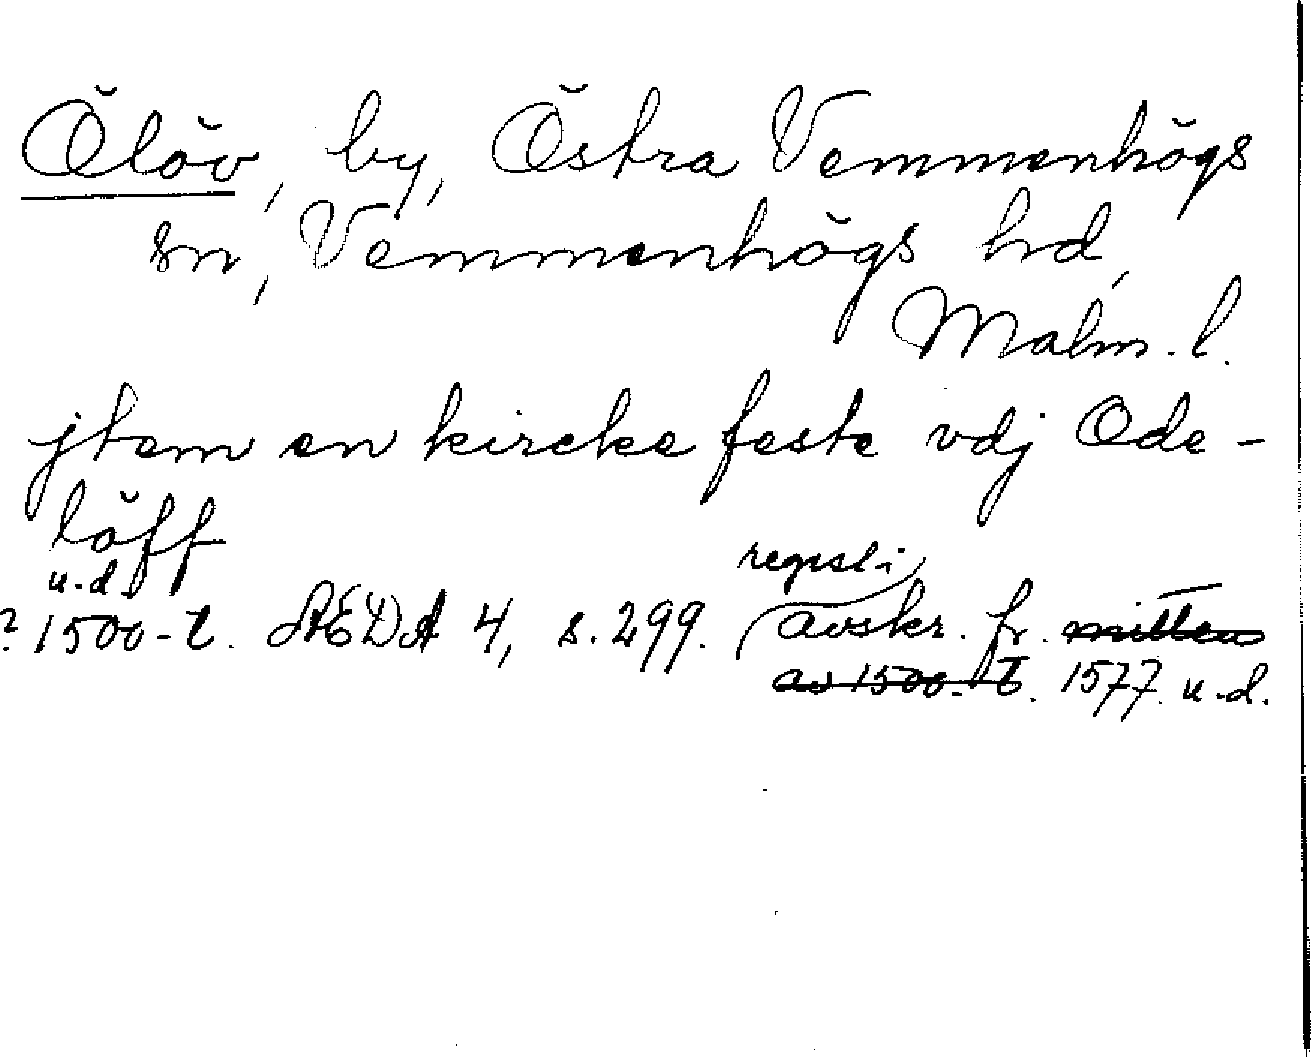 Ölöv, by, Östra Vemmenhögs
sn, Vemmenhögs hd,
Malm. l.
jtem en kircke feste vdj Ode-
löff
u.d.
? 1500-t. AEDA 4, s. 299. (avskr. fr. mitten
av 1500-t. 1577. u.d.